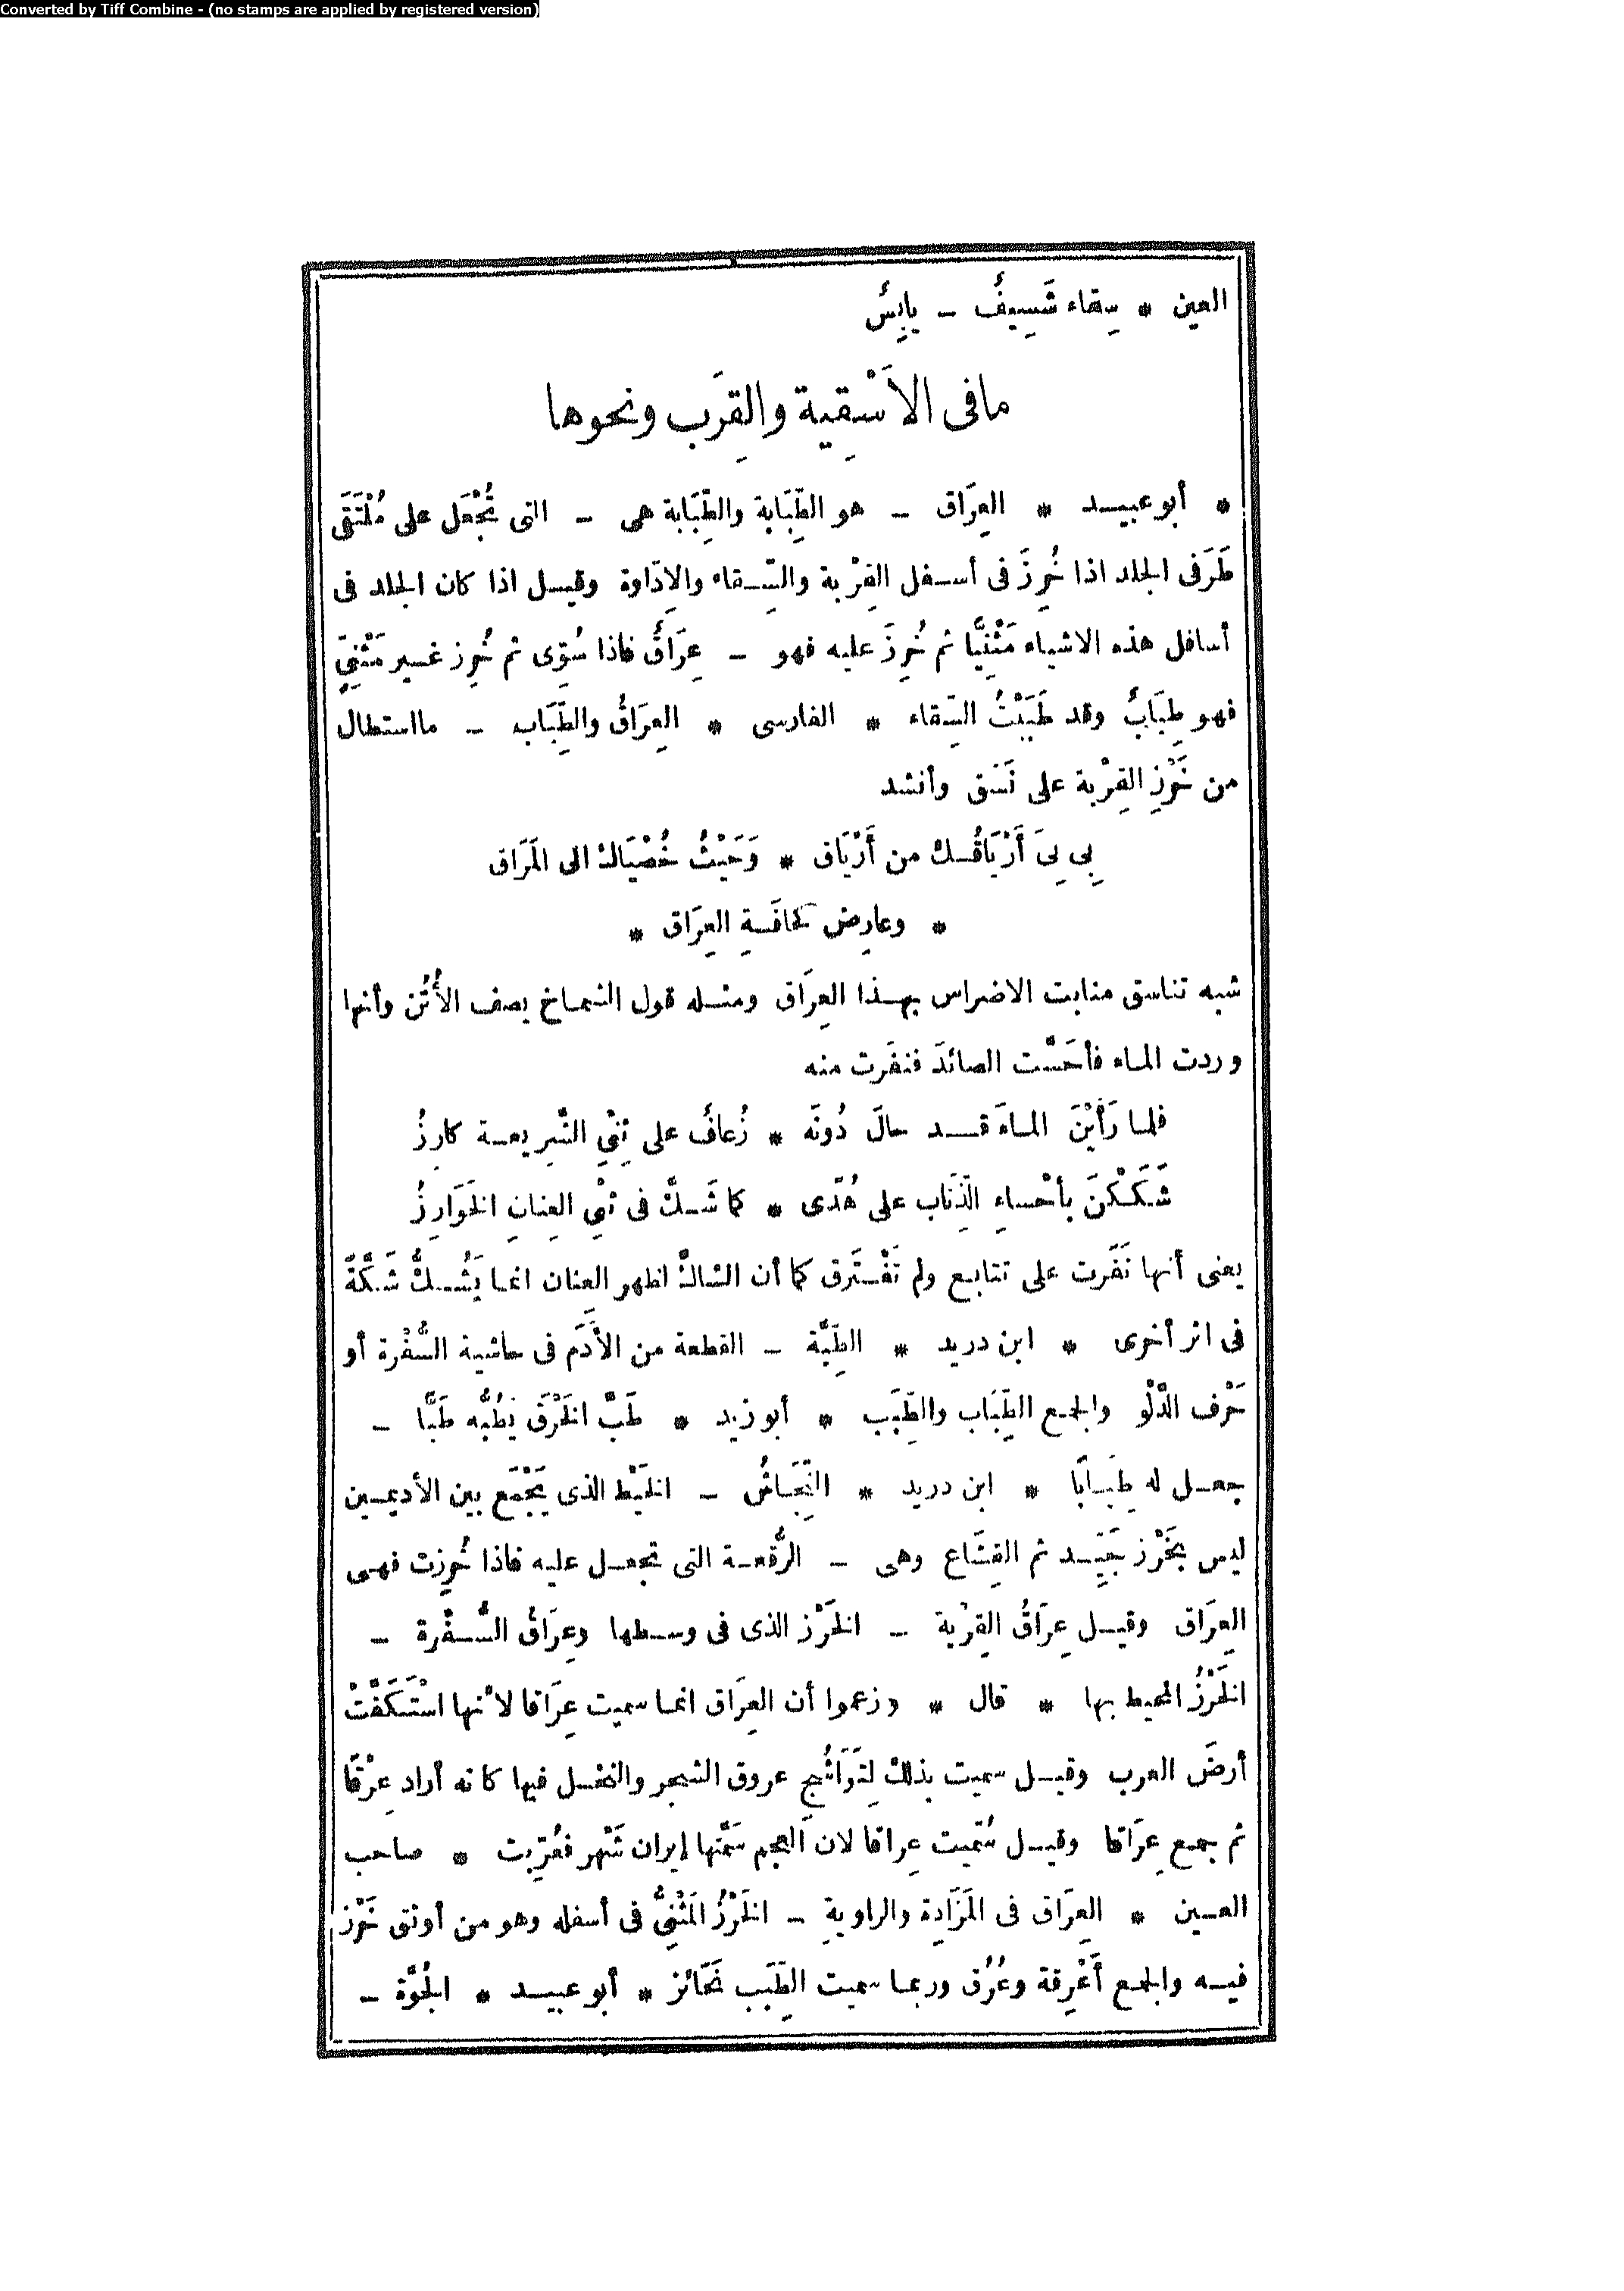 Converted by Tiff Combine - (no stamps are applied by registered version)
العين * سِقاء شَسِيفٌ - يابِسٌ
مافى الاَسْقِية والقِرَب ونحوها
* أبوعبيد * العِرَاق - هو الطِّبَابة والطِّبَابة هى - التى تُجْعَل على مُلْتَقَى
طَرَفى الجلد اذا خُرِزَ فى أسفل القِرْبة والسِّقاء والإدَاوة وقيل اذا كان الجلد فى
أسافل هذه الاشياء مَثْنِيًّا ثم خُرِزَ عليه فهو - عِرَاقٌ فاذا سُوِّى ثم خُرِز غير مَثْنِىٍّ
فهو طِبَابٌ وقد طَبَبْتُ السِّقاء * الفارسى * العِرَاقُ والطِّبَاب - مااستطال
من خَرْزِ القِرْبة على نَسَق وأنشد
بِى لِىَ أَرْيَاقُك من أَرْيَاق * وَحَيْثُ خُصْيَاك الى المَرَاق
* وعارِض كحافَةِ العِرَاق *
شبه تناسق منابت الاضراس بهذا العِرَاق ومثله قول الشماخ يصف الأُتُن وأنها
وردت الماء فأحَسَّت الصائدَ فنفَرت منه
فلما رَأَيْنَ الماءَ قد حالَ دُونَه * زُعافٌ على ثِنْىِ الشَّرِيعة كارِزُ
شَكَكْنَ بأحْساءِ الذِّنَاب على هُدًى * كما شَكَّ فى ثِنْىِ العِنانِ الخَوَارِزُ
يعنى أنها نَفَرت على تتابع ولم تَفْتَرق كما أن الشاكَّ لظهر العنان انما يَشُكُّ شَكَّةً
فى اثر أخرى * ابن دريد * الطِّبَّة - القطعة من الأَدَم فى حاشية السُّفْرة أو
حَرْف الدَّلْو والجمع الطِّبَاب والطِّبَب * أبو زيد * طَبَّ الخَرْقَ يَطُبُّه طَبًّا -
جعل له طِبَابًا * ابن دريد * النِّجَاشُ - الخَيْط الذى يَجْمَع بين الأديمين
ليس بخَرْز جَيِّد ثم القِشَاع وهى - الرُّقعة التى تجعل عليه فاذا خُرِزت فهى
العِرَاق وقيل عِرَاقُ القِرْبة - الخَرْز الذى فى وسطها وعِرَاقُ السُّفْرة -
الخَرْزُ المحيط بها * قال * وزعموا أن العِرَاق انما سميت عِرَاقا لأنها اسْتَكَفَّتْ
أرضَ العرب وقيل سميت بذلك لِتَوَاشُجِ عروق الشجر والنخل فيها كانه أراد عِرْقًا
ثم جمع عِرَاقا وقيل سُمِّيت عِراقا لان العجم سَمَّتها إيران شَهْر فعُرِّبت * صاحب
العين * العِرَاق فى المَزَادة والراوية - الخَرْزُ المَثْنِىُّ فى أسفله وهو من أوثق خَرْز
فيه والجمع أَعْرِقة وعُرُق وربما سميت الطِّبَب نَحَائز * أبو عبيد * الجُوَّة -